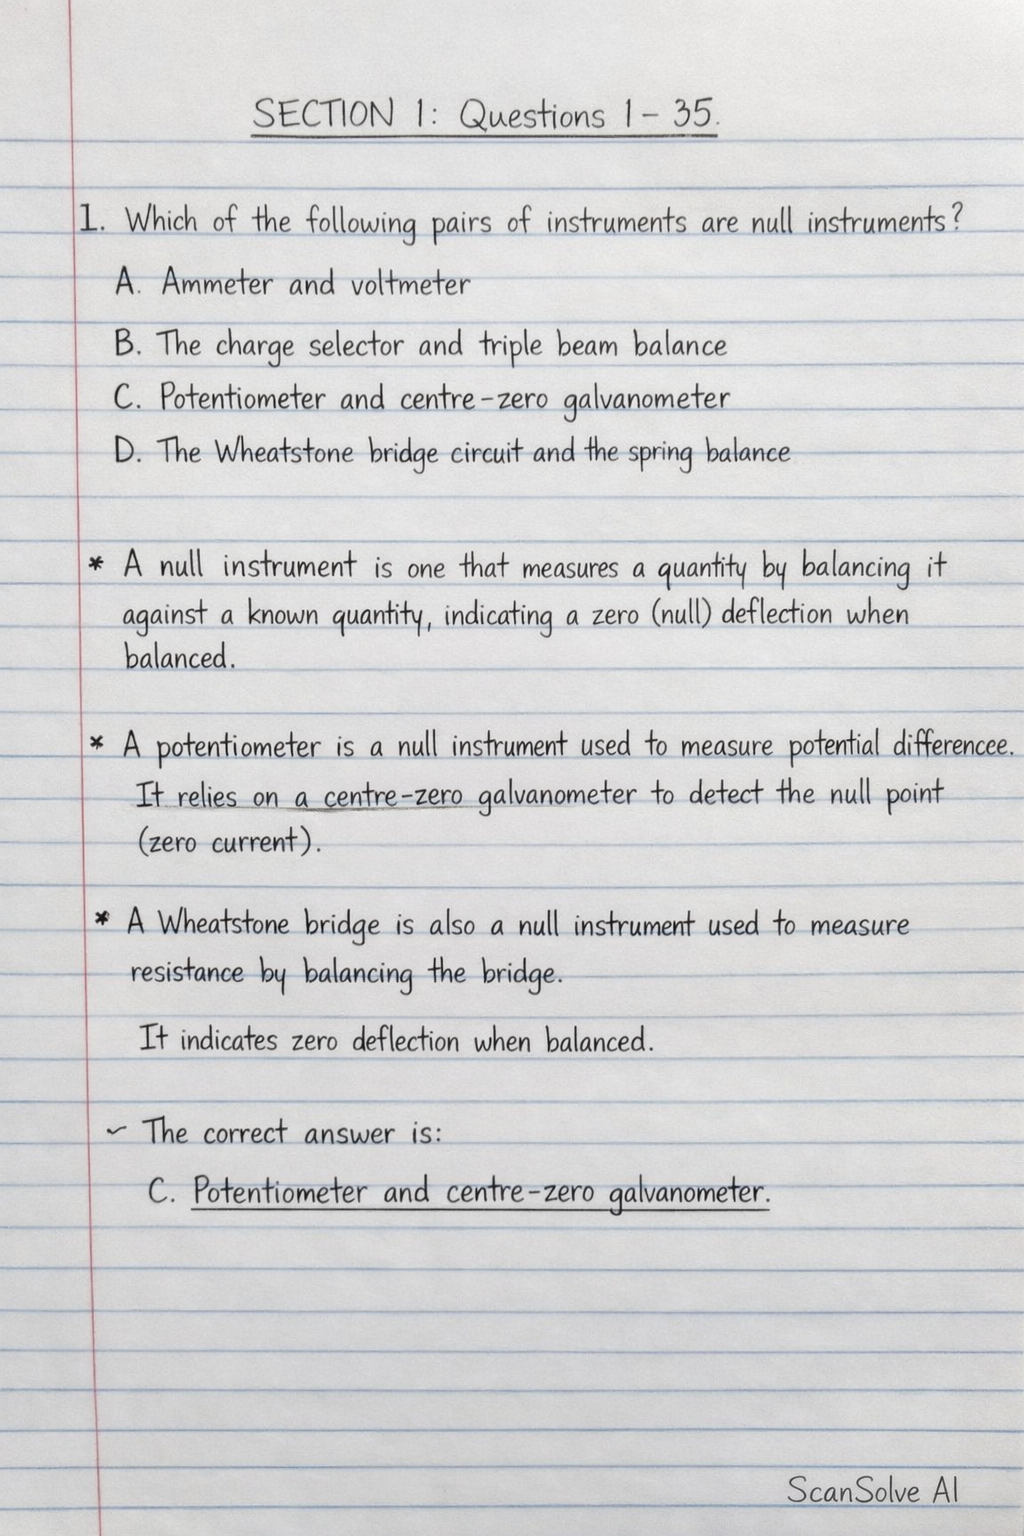 SECTION 1: Questions 1 - 35.
1. Which of the following pairs of instruments are null instruments?
A. Ammeter and voltmeter
B. The charge selector and triple beam balance
C. Potentiometer and centre-zero galvanometer
D. The Wheatstone bridge circuit and the spring balance
* A null instrument is one that measures a quantity by balancing it
against a known quantity, indicating a zero (null) deflection when
balanced.
* A potentiometer is a null instrument used to measure potential differencee.
It relies on a centre-zero galvanometer to detect the null point
(zero current).
* A Wheatstone bridge is also a null instrument used to measure
resistance by balancing the bridge.
It indicates zero deflection when balanced.
~ The correct answer is:
C. Potentiometer and centre-zero galvanometer.
ScanSolve AI